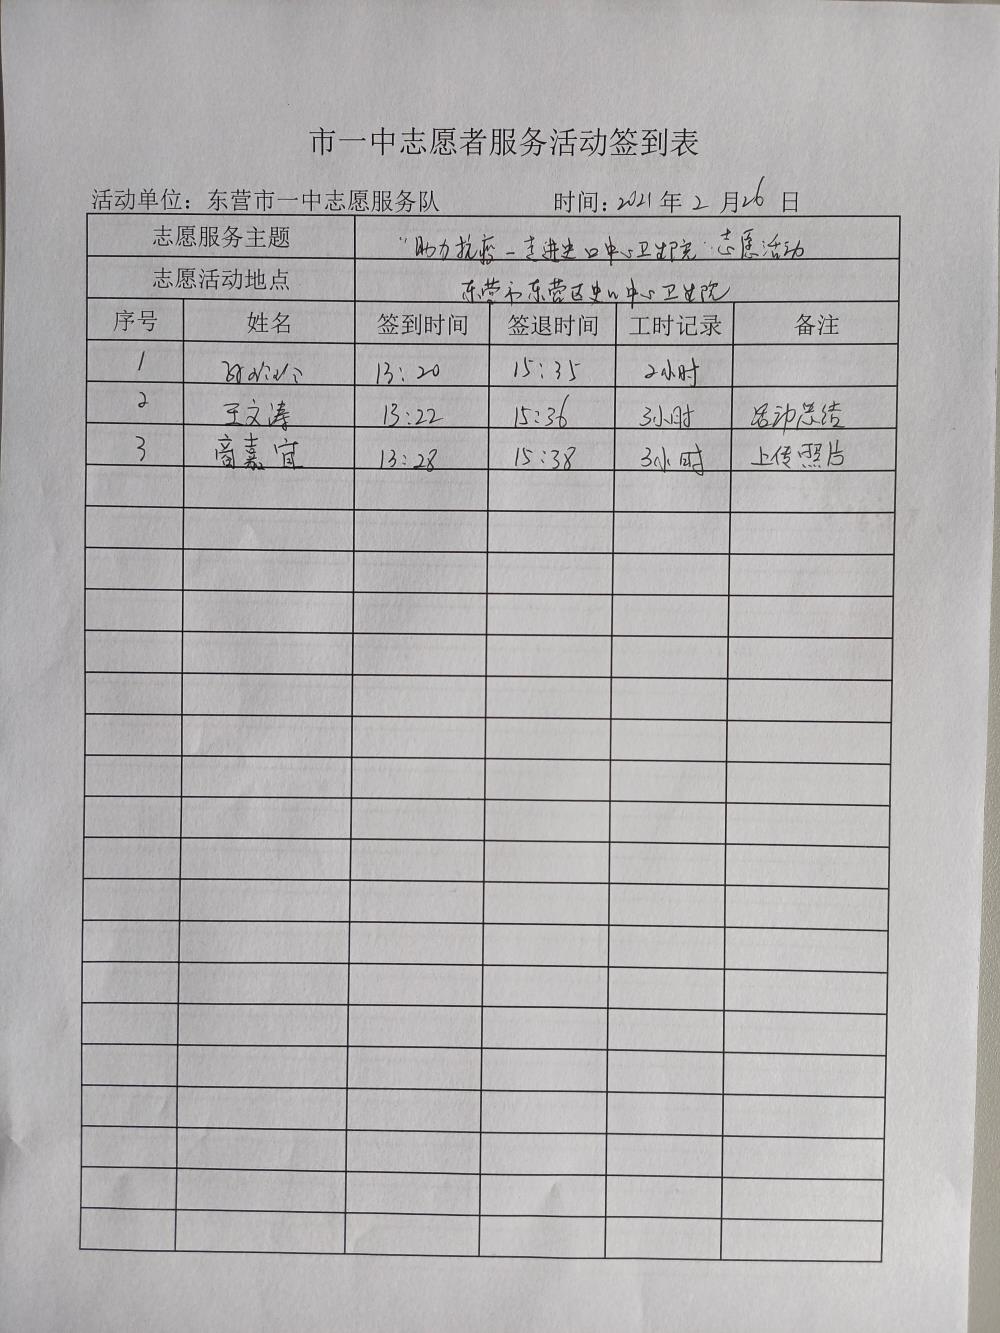 市一中志愿者服务活动签到表
活动单位：东营市一中志愿服务队 时间：2021年 2 月26 日
志愿服务主题 “助力抗疫－走进史口中心卫生院”志愿活动
志愿活动地点 东营市东营区史口中心卫生院
序号 姓名 签到时间 签退时间 工时记录 备注
1 13:20 15:35 2小时
2 王文涛 13:22 15:36 3小时 活动总结
3 商嘉宜 13:28 15:38 3小时 上传照片